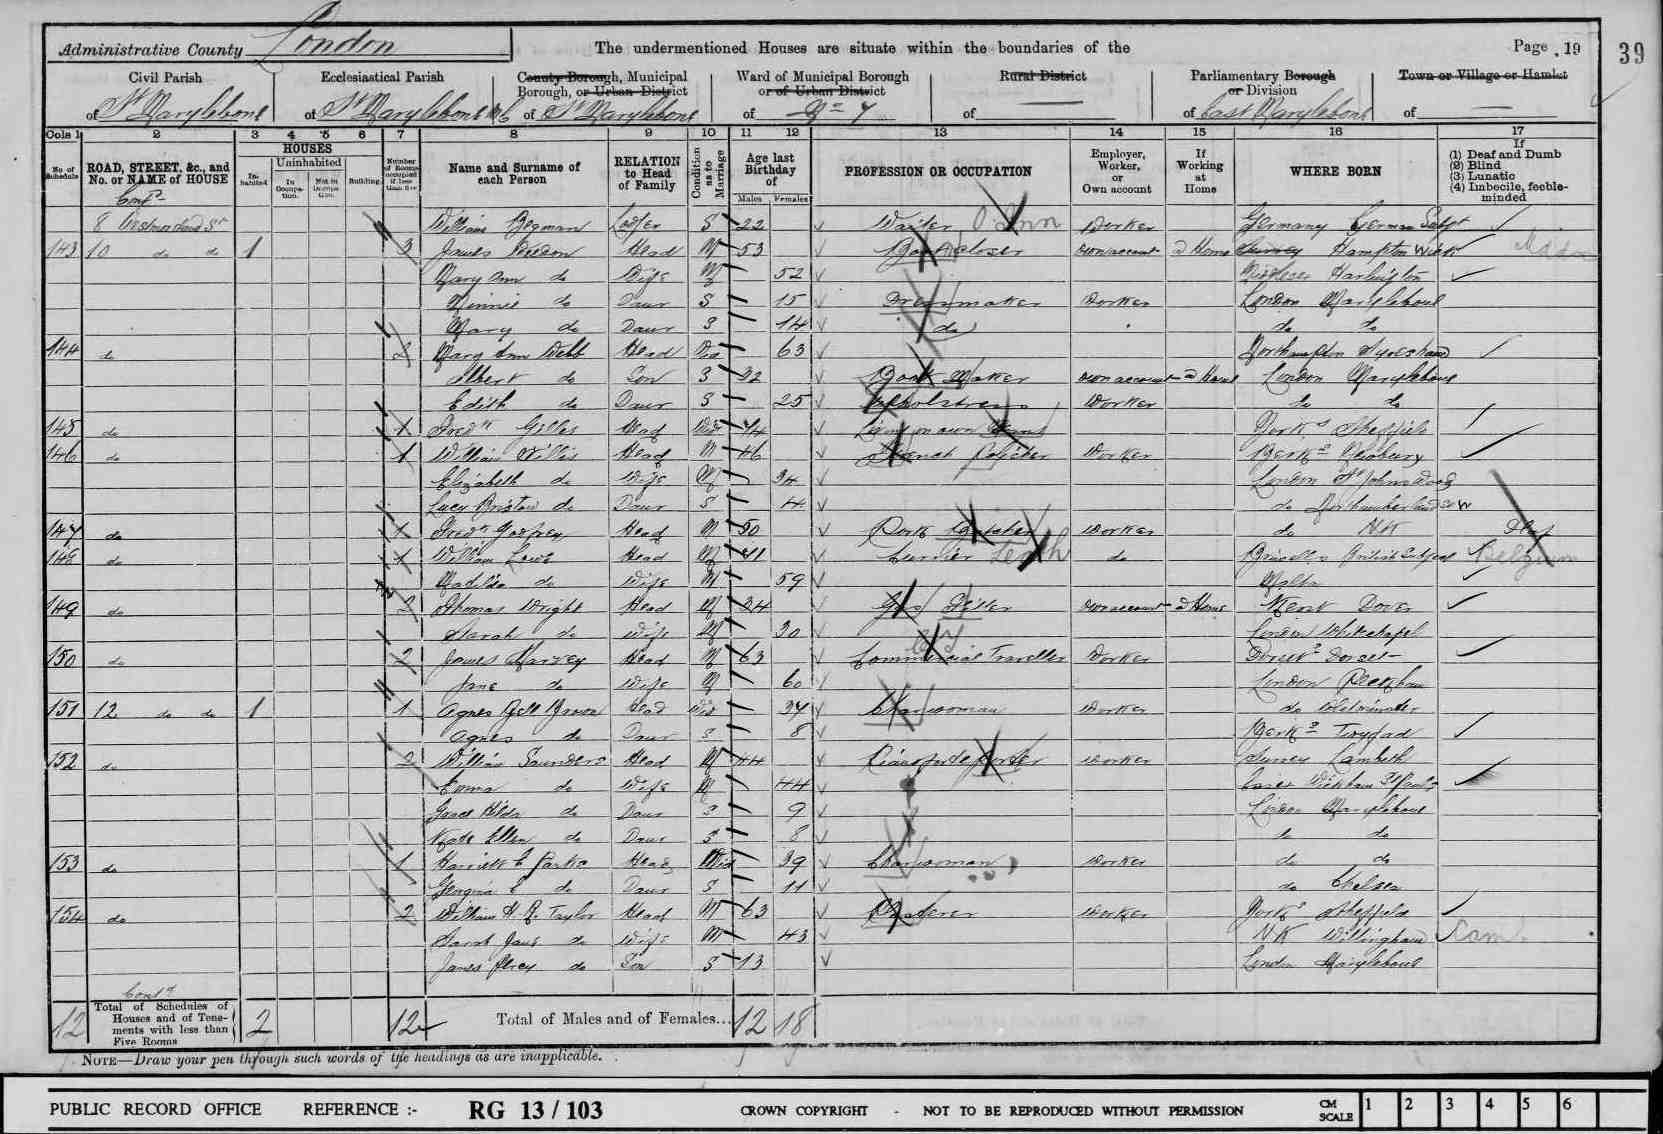 Administrative County London The undermentioned Houses are situate within the boundaries of the Page 19 39
Civil Parish Ecclesiastical Parish County Borough, Municipal Borough, or Urban District Ward of Municipal Borough or of Urban District Rural District Parliamentary Borough or Division Town or Village or Hamlet
of St Marylebone of St Marylebone of St Marylebone of No 7 of — of East Marylebone of —
Cols 1 2 3 4 5 6 7 8 9 10 11 12 13 14 15 16 17
No of Schedule ROAD, STREET, &c., and No. or NAME of HOUSE HOUSES Inhabited Uninhabited In Occupation. Not in Occupation. Building Number of Rooms occupied if less than five Name and Surname of each Person RELATION to Head of Family Condition as to Marriage Age last Birthday of Males Females PROFESSION OR OCCUPATION Employer, Worker, or Own account If Working at Home WHERE BORN If (1) Deaf and Dumb (2) Blind (3) Lunatic (4) Imbecile, feeble-minded
8 William Lodger S 22 Waiter Worker Germany German Subjt
143 10 do do 1 3 James Head M 53 own account at Home Surrey Hampton Wick
Mary Ann do Wife M 52 Harlington
Minnie do Daur S 15 Dressmaker Worker London Marylebone
Mary do Daur S 14 do do do
144 do 2 Mary Ann Webb Head Wid 63 Northampton
Albert do Son S 32 Boot Maker own account at Home London Marylebone
Edith do Daur S 25 Upholstress Worker do do
145 do 1 Fredk Head 74 Living on own Means Yorks Sheffield
146 do 1 William Willis Head M 46 French Polisher Worker Berks Newbury
Elizabeth do Wife M 34 London St Johns Wood
Lucy Bristow do Daur S 4 do
147 do 1 Fredk Godfrey Head M 50 Worker do N K
148 do 1 William Lowe Head M 41 Currier Leath do British Subject Belgium
Matilda do Wife M 59 Malta
149 do 2 Thomas Wright Head M 34 Gas Fitter own account at Home Kent Dover
Sarah do Wife M 30 London Whitechapel
150 do 2 James Harvey Head M 63 Commercial Traveller Worker Dorset
Jane do Wife M 60 London Peckham
151 12 do do 1 1 Agnes Brown Head Wid 37 Charwoman Worker do Westminster
Agnes do Daur S 8 Berks Twyford
152 do 2 William Saunders Head M 44 Pianoforte Porter Worker Surrey Lambeth
Emma do Wife M 44 Essex Wickham St Pauls
Grace Hilda do Daur S 9 London Marylebone
Kate Ellen do Daur S 8 do do
153 do 1 Harriett E Parks Head Wid 39 Charwoman Worker do do
Georgina E do Daur S 11 do Chelsea
154 do 2 William H. R. Taylor Head M 63 Worker Yorks Sheffield
Sarah Jane do Wife M 43 N K Willingham Camb
James Percy do Son S 13 London Marylebone
12 Total of Schedules of Houses and of Tenements with less than Five Rooms 2 12 Total of Males and of Females... 12 18
NOTE—Draw your pen through such words of the headings as are inapplicable.
PUBLIC RECORD OFFICE REFERENCE :- RG 13 / 103 CROWN COPYRIGHT - NOT TO BE REPRODUCED WITHOUT PERMISSION CM SCALE 1 2 3 4 5 6